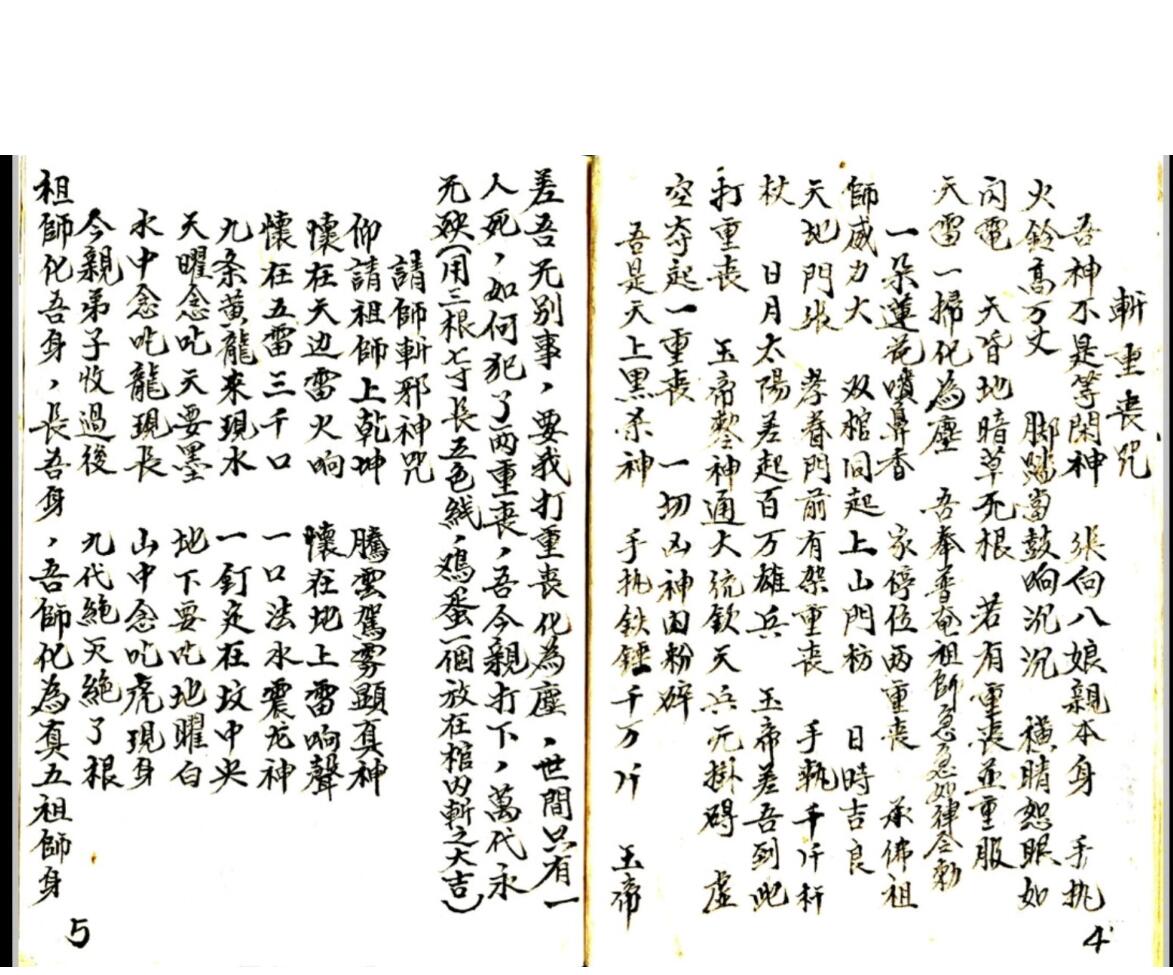 斬重喪咒
吾神不是等閑神 張伯八娘親本身 手执
火鈴高万丈 脚踏當鼓响沉沉 横睛恕眼如
闪電 天昏地暗草死根 若有重丧並重服
天雷一掃化為塵 吾奉普奄祖師急急如律令勅
一朵蓮花噴鼻香 家停位两重丧 承佛祖
師威力大 双棺同起上山門枋 日時吉良
天地門张 孝眷門前有架重丧 手執千斤秤
杖 日月太陽差起百万雄兵 玉帝差吾到此
打重丧 玉帝勅神通大统欽天兵无掛碍 虚
空夺起一重丧 一切凶神因粉碎
吾是天上黑杀神 手执铁錘千万斤 玉帝
4
差吾无别事，要我打重丧化為塵，世間只有一
人死，如何犯了两重丧，吾今親打下，萬代永
无殃(用三根七寸長五色线，鸡蛋一個放在棺内斬之大吉)
請師斬邪神咒
仰請祖師上乾坤 騰雲駕雾顕真神
懐在天边雷火响 懐在地上雷响聲
懐在五雷三千口 一口法水震龙神
九条黄龍来現水 一釘定在坟中央
天曜念吃天要墨 地下要吃地曜白
水中念吃龍現長 山中念吃虎現身
今親弟子收過後 九代絶灭絶了根
祖師化吾身，長吾身，吾師化為真五祖師身
5